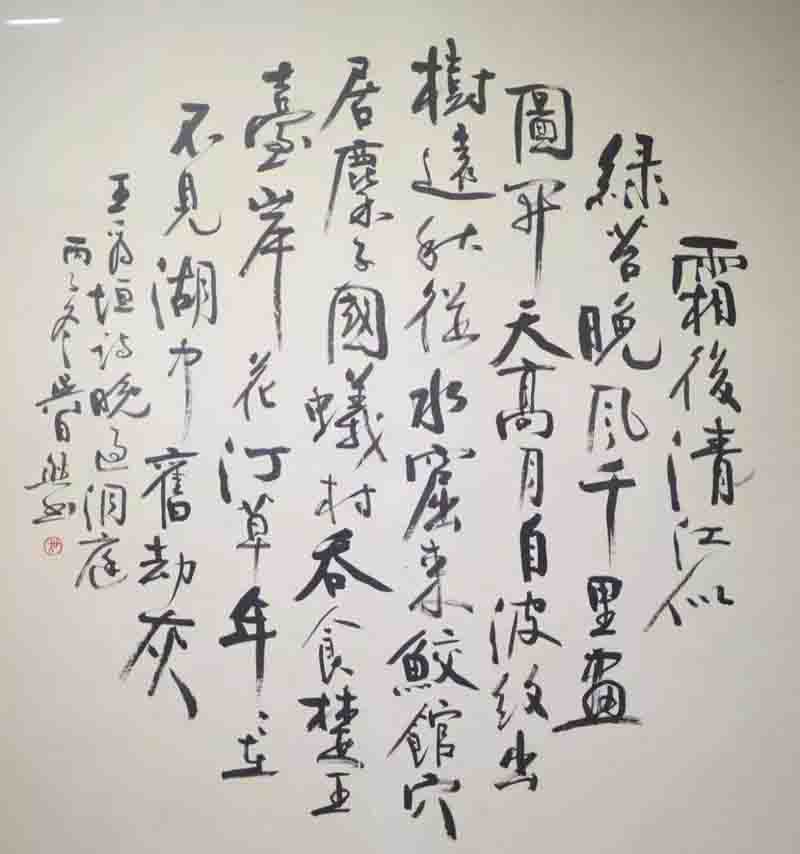 霜後清江似
綠苔晚風千里畫
圖開天高月自波紋出
樹遠秋從水窟來鮫館穴
居麋子國蟻村吞食楚王
臺岸花汀草年々在
不見湖中舊劫灰
王垣詩晚過洞庭
丙冬書